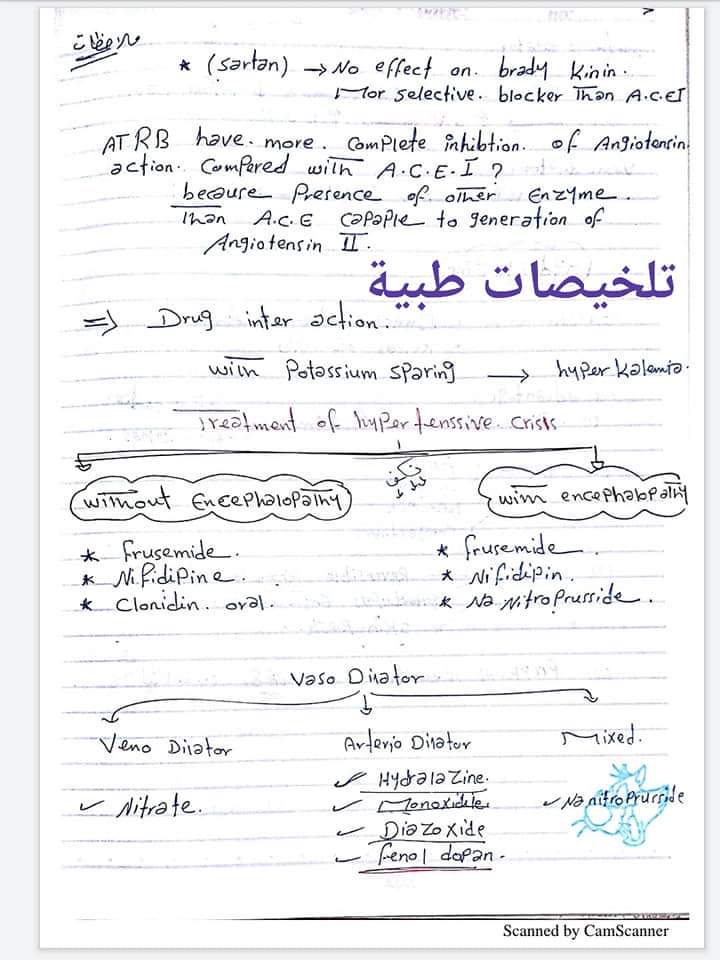 ملاحظات
* (sartan) → No effect on. brady Kinin.
Mor selective. blocker Than A.C.EI
ATRB have. more. Complete inhibtion. of Angiotensin
action. Compered with A.C.E.I ?
because Presence of other Enzyme.
Than A.C.E capaple to generation of
Angiotensin II.
تلخيصات طبية
=> Drug inter action.
with Potassium sparing → hyperkalemia.
Treatment of hypertenssive. crisis
without Encephalopathy
with encephalopathy
* frusemide.
* Nifidipine.
* Clonidin. oral.
* frusemide.
* Nifidipin.
* Na Nitroprusside.
Vaso Dilator
Veno Dilator
✓ Nitrate.
Arterio Dilator
✓ Hydralazine.
✓ Monoxidile
✓ Diazoxide
✓ fenol dopan.
Mixed.
✓ Na nitroprusside
Scanned by CamScanner